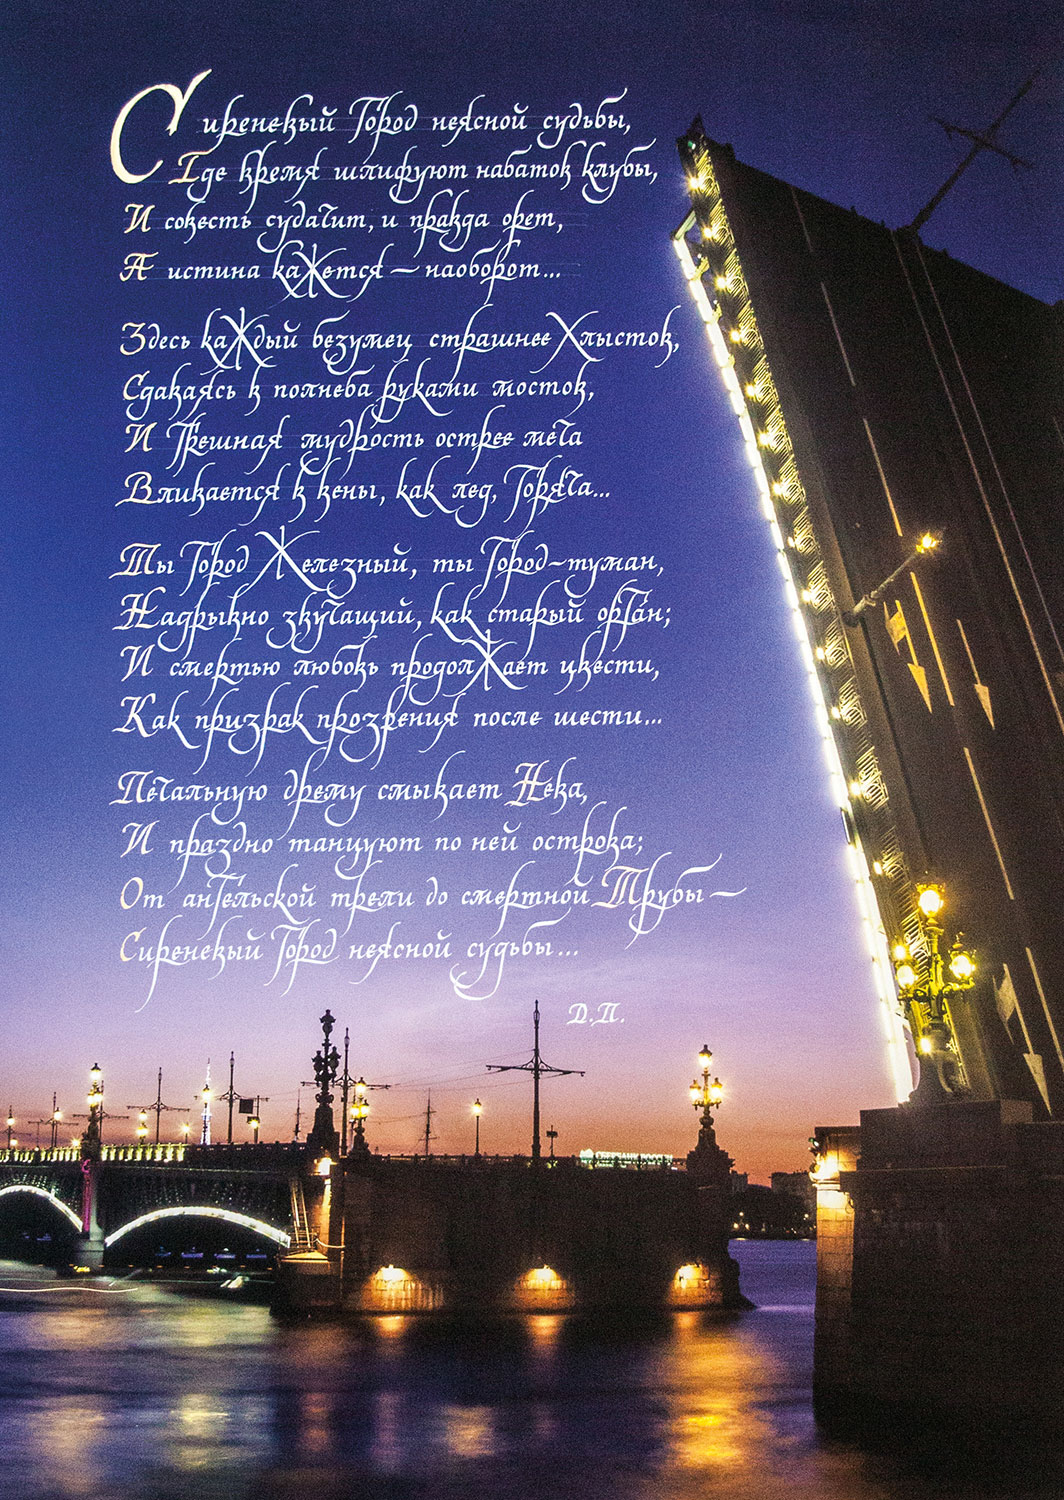 Сиреневый Город неясной судьбы,
Где время шлифуют набатов клубы,
И совесть судачит, и правда орет,
А истина кажется – наоборот...
Здесь каждый безумец страшнее Хлыстов,
Сдаваясь в полнеба руками мостов,
И Грешная мудрость острее меча
Вливается в вены, как лед, Горяча...
Ты Город Железный, ты Город-туман,
Надрывно звучащий, как старый орган;
И смертью любовь продолжает цвести,
Как призрак прозрения после шести...
Печальную дрему смывает Нева,
И праздно танцуют по ней острова;
От ангельской трели до смертной Трубы –
Сиреневый Город неясной судьбы...
Д.П.